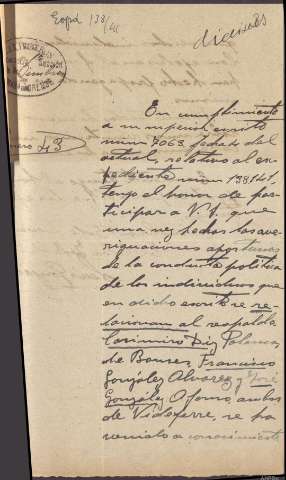 138/41
En cumplimiento
a su superior escrito
núm 7063 fecha del
actual, relativo al ex-
pediente núm 138/41,
tengo el honor de par-
ticipar a V. S. que
una vez hechas las ave-
riguaciones oportunas
de la conducta política
de los individuos que
en dicho escrito se re-
lacionan al respaldo
Casimiro Diz
de Francisco
González Alvarez y José
González ambos
de Videferre, se ha
venido a conocimiento